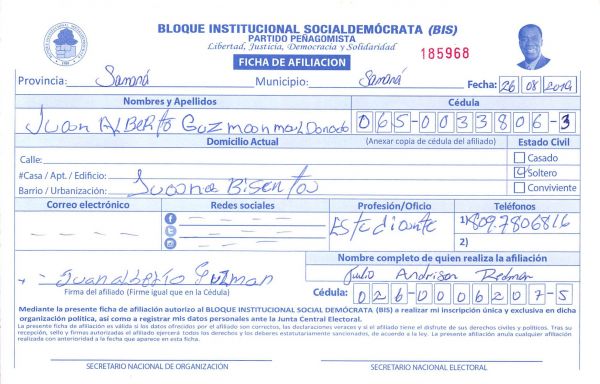 BLOQUE INSTITUCIONAL SOCIALDEMÓCRATA (BIS)
PARTIDO PEÑAGOMISTA
Libertad, Justicia, Democracia y Solidaridad
FICHA DE AFILIACION
185968
Provincia: Samaná Municipio: Samaná Fecha: 26 08 2019
Nombres y Apellidos Cédula
Juan ALBERTO Guzmanmaldonado 065-0033806-3
Domicilio Actual (Anexar copia de cédula del afiliado) Estado Civil
Calle: Casado
#Casa / Apt. / Edificio: Soltero
Barrio / Urbanización: Juana Bisenta Conviviente
Correo electrónico Redes sociales Profesión/Oficio Teléfonos
Estudiante 1) 809.7806816
2)
Nombre completo de quien realiza la afiliación
Juanalberto Guzman Julio Andrison Redman
Firma del afiliado (Firme igual que en la Cédula) Cédula: 026-0006207-5
Mediante la presente ficha de afiliación autorizo al BLOQUE INSTITUCIONAL SOCIAL DEMÓCRATA (BIS) a realizar mi inscripción única y exclusiva en dicha
organización política, así como a registrar mis datos personales ante la Junta Central Electoral.
La presente ficha de afiliación es válida si los datos ofrecidos por el afiliado son correctos, las declaraciones veraces y si el afiliado tiene el disfrute de sus derechos civiles y políticos. Tras su
recepción, sello y firmas autorizadas el afiliado ejercerá todos los derechos y los deberes estatutariamente sancionados, de acuerdo a la ley. La presente afiliación anula cualquier afiliación
realizada con anterioridad a la fecha que aparece en esta ficha.
SECRETARIO NACIONAL DE ORGANIZACIÓN SECRETARIO NACIONAL ELECTORAL